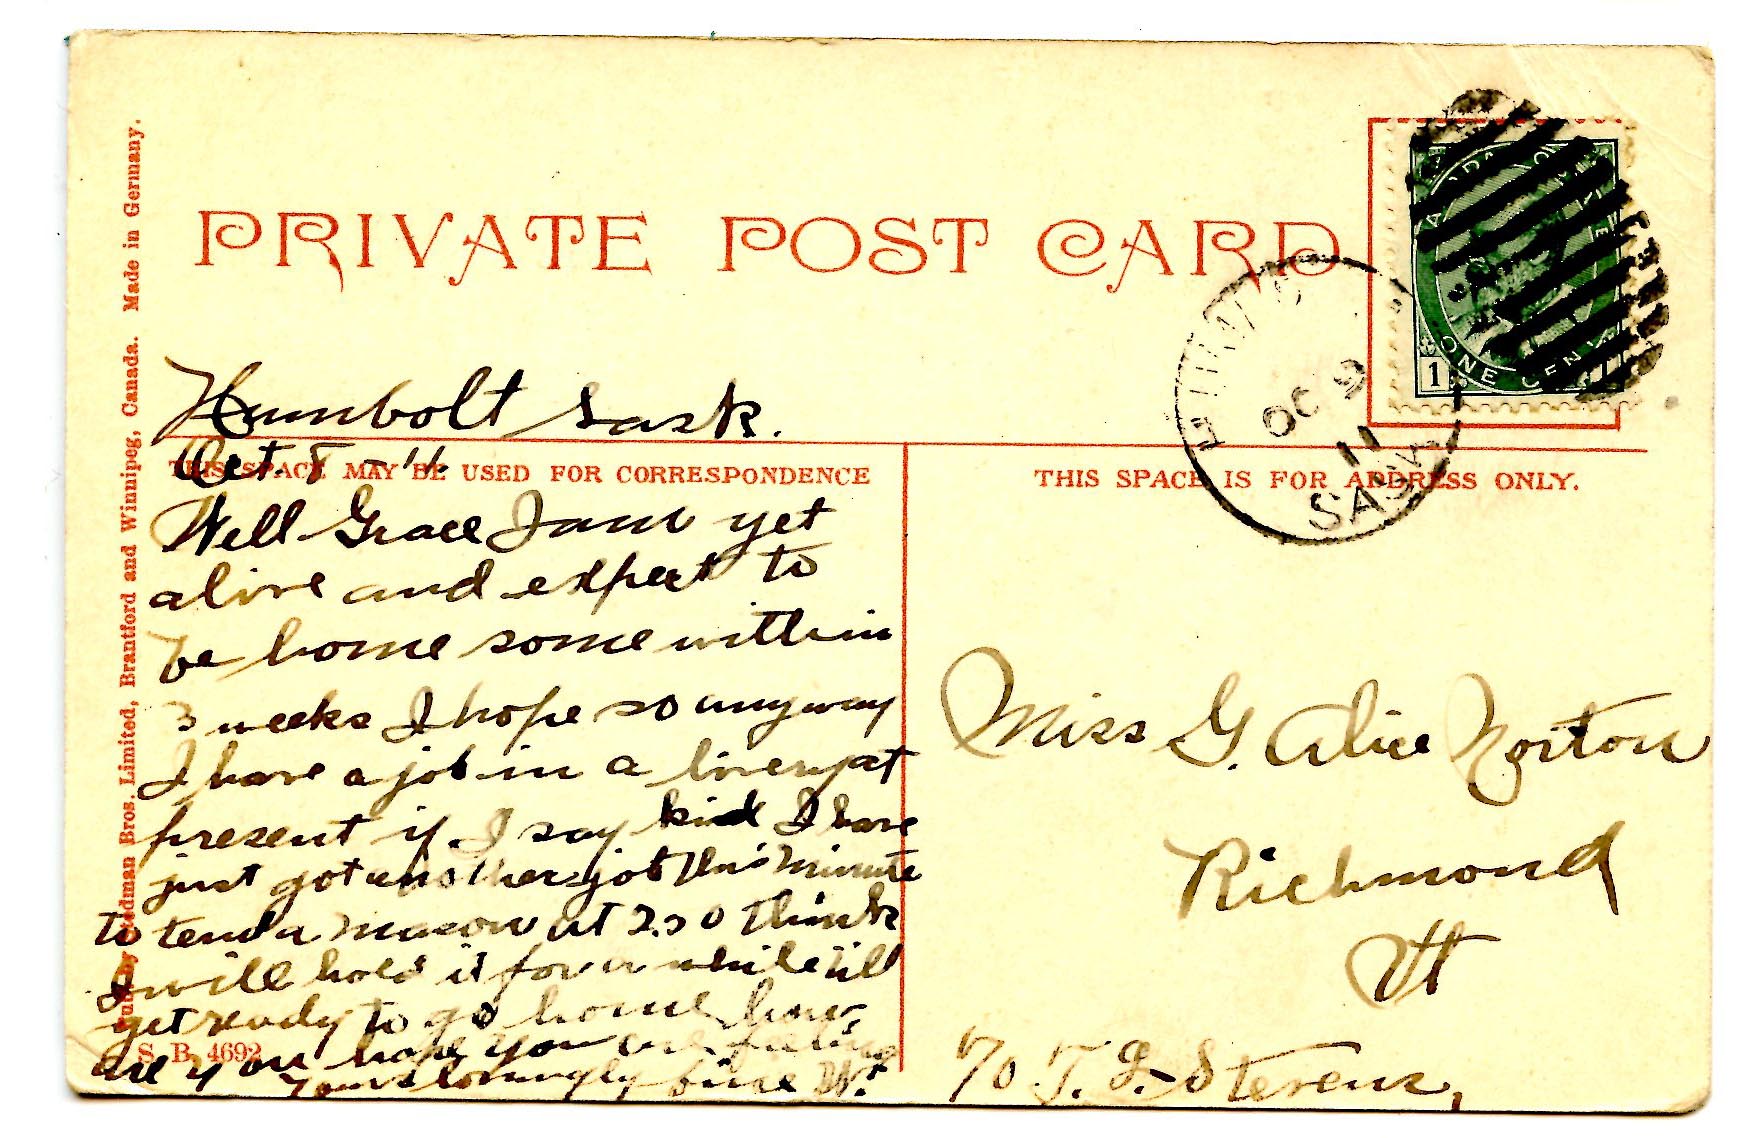 PRIVATE POST CARD
Made in Germany.
Bros. Limited, Brantford and Winnipeg, Canada.
CANADA POSTAGE
ONE CENT
1
OC 9
11
SASK
Humbolt Sask.
Oct. 8 - '11.
THIS SPACE MAY BE USED FOR CORRESPONDENCE
THIS SPACE IS FOR ADDRESS ONLY.
Well Grace I am yet
alive and expect to
be home some within
3 weeks I hope so anyway
I have a job in a livery at
present if I say kid I have
just got another job this minute
to tend a mason at 2.50 think
I will hold it for a while till
get ready to go home how
are you hope you are feeling
fine W.
Yours lovingly
S. B. 4692
Miss G. Alice Norton
Richmond
Vt
c/o T. L. Stevens,